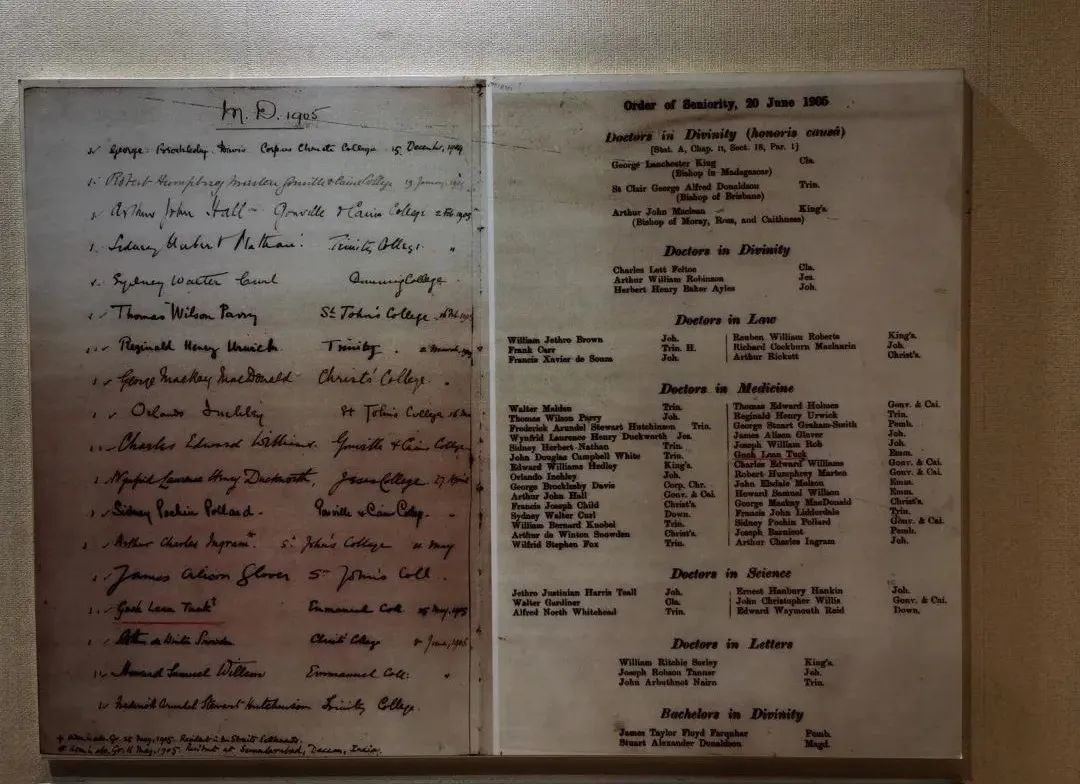 M. D. 1905
George Brocklesby Davis Corpus Christi College 15 December, 1904
Robert Humphrey Marten Gonville & Caius College 19 January, 1905
Arthur John Hall Gonville & Caius College 2 Feb. 1905
Sidney Herbert Nathan Trinity College "
Sydney Walter Curl Downing College
Thomas Wilson Parry St John's College 16 Feb. 1905
Reginald Henry Urwick Trinity
George Mackay MacDonald Christ's College
Orlando Inchley St John's College
Charles Edward Williams Gonville & Caius College
Wynfrid Laurence Henry Duckworth, Jesus College 27 April
Sidney Pochin Pollard Gonville & Caius College
Arthur Charles Ingram* St John's College 11 May
James Alison Glover St John's Coll.
Gnoh Lean Tuck† Emmanuel Coll. 25 May, 1905
Arthur de Winton Snowden Christ's College 8 June, 1905
Howard Samuel Willson Emmanuel Coll: "
Frederick Arundel Stewart Hutchinson Trinity College.
† adm. in abs. Gr. 25 May, 1905. Resident in the Straits Settlements.
* adm. in abs. Gr. 11 May, 1905. Resident at Secunderabad, Deccan, India.
Order of Seniority, 20 June 1905
Doctors in Divinity (honoris causâ)
[Stat. A, Chap. II, Sect. 18, Par. 1]
George Lanchester King Cla.
(Bishop in Madagascar)
St Clair George Alfred Donaldson Trin.
(Bishop of Brisbane)
Arthur John Maclean King's
(Bishop of Moray, Ross, and Caithness)
Doctors in Divinity
Charles Lett Feltoe Cla.
Arthur William Robinson Jes.
Herbert Henry Baker Ayles Joh.
Doctors in Law
William Jethro Brown Joh.
Frank Carr Trin. H.
Francis Xavier de Souza Joh.
Reuben William Roberts King's
Richard Cockburn Maclaurin Joh.
Arthur Rickett Christ's
Doctors in Medicine
Walter Malden Trin.
Thomas Wilson Parry Joh.
Frederick Arundel Stewart Hutchinson Trin.
Wynfrid Laurence Henry Duckworth Jes.
Sidney Herbert Nathan Trin.
John Douglas Campbell White Trin.
Edward Williams Hedley King's
Orlando Inchley Joh.
George Brocklesby Davis Corp. Chr.
Arthur John Hall Gonv. & Cai.
Francis Joseph Child Christ's
Sydney Walter Curl Down.
William Bernard Knobel Trin.
Arthur de Winton Snowden Christ's
Wilfrid Stephen Fox Trin.
Thomas Edward Holmes Gonv. & Cai.
Reginald Henry Urwick Trin.
George Stuart Graham-Smith Pemb.
James Alison Glover Joh.
Joseph William Rob Joh.
Gnoh Lean Tuck Emm.
Charles Edward Williams Gonv. & Cai.
Robert Humphrey Marten Gonv. & Cai.
John Elsdale Molson Emm.
Howard Samuel Willson Emm.
George Mackay MacDonald Christ's
Francis John Lidderdale Trin.
Sidney Pochin Pollard Gonv. & Cai.
Joseph Barnicot Pemb.
Arthur Charles Ingram Joh.
Doctors in Science
Jethro Justinian Harris Teall Joh.
Walter Gardiner Cla.
Alfred North Whitehead Trin.
Ernest Hanbury Hankin Joh.
John Christopher Willis Gonv. & Cai.
Edward Waymouth Reid Down.
Doctors in Letters
William Ritchie Sorley King's
Joseph Robson Tanner Joh.
John Arbuthnot Nairn Trin.
Bachelors in Divinity
James Taylor Floyd Farquhar Pemb.
Stuart Alexander Donaldson Magd.